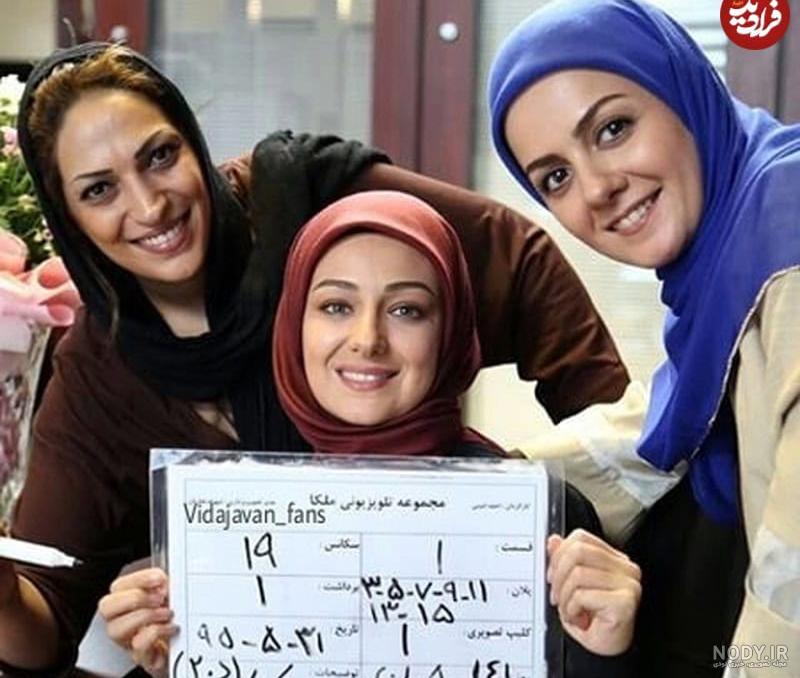 فرادید
مجموعه تلویزیونی ملکا
Vidajavan_fans
قسمت : ۱
سکانس : ۱۹
پلان : ۳-۵-۷-۹-۱۱
۱۳-۱۵
برداشت : ۱
کلیپ تصویری : ۱
تاریخ : ۹۵-۵-۳۱
توضیحات :
NODY.IR